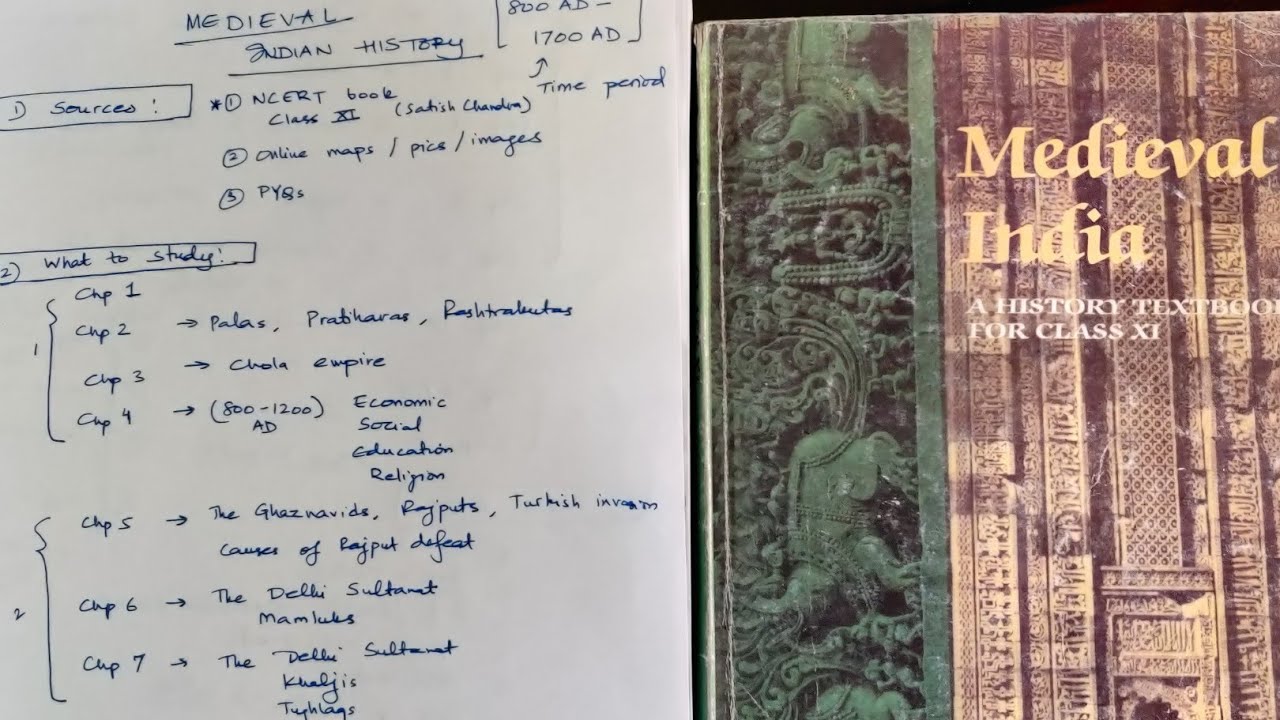 MEDIEVAL
INDIAN HISTORY
[800 AD –
1700 AD]
↑
Time period
1) Sources:
*① NCERT book
Class XI (Satish Chandra)
② Online maps / pics / images
③ PYQs
2) What to study:
Chp 1
1
Chp 2 → Palas, Pratiharas, Rashtrakutas
Chp 3 → Chola empire
Chp 4 → (800-1200) Economic
AD Social
Education
Religion
Chp 5 → The Ghaznavids, Rajputs, Turkish invasion
Causes of Rajput defeat
2
Chp 6 → The Delhi Sultanat
Mamluks
Chp 7 → The Delhi Sultanat
Khaljis
Tughlaqs
Medieval
India
A HISTORY TEXTBOO
FOR CLASS XI